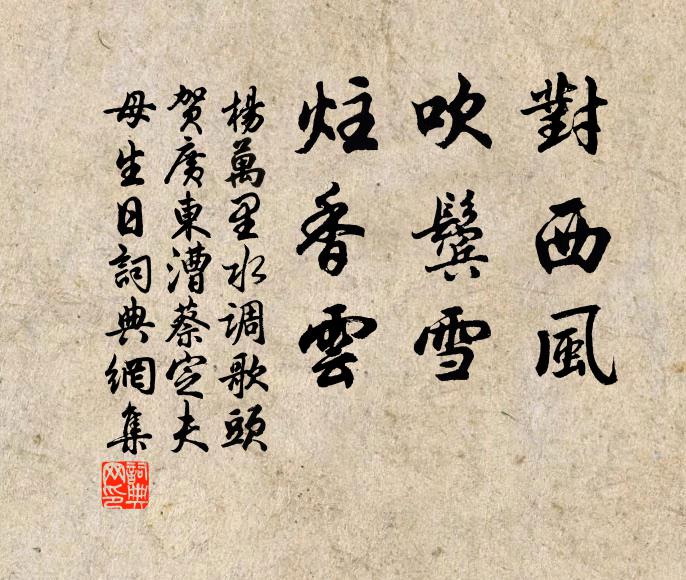 對西風
吹鬢雪
炷香雲
楊萬里水调歌頭
贺廣東漕蔡定夫
母生日詞典網集
詞典网印